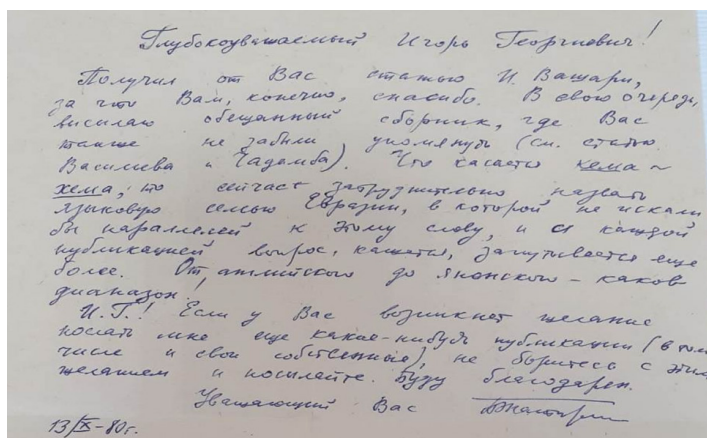 Глубокоуважаемый Игорь Георгиевич!
Получил от Вас статью И. Вашари,
за что Вам, конечно, спасибо. В свою очередь,
высылаю обещанный сборник, где Вас
также не забыли упомянуть (см. статью
Васильева и Чадамба). Что касается кема ~
хема, то сейчас затруднительно назвать
языковую семью Евразии, в которой не искали
бы параллелей к этому слову, и с каждой
публикацией вопрос, кажется, запутывается еще
более. От английского до японского – каков
диапазон.
И.Г.! Если у Вас возникнет желание
послать мне еще какие-нибудь публикации (в том
числе и свои собственные), не боритесь с этим
желанием и посылайте. Буду благодарен.
Уважающий Вас
13/IX-80г.